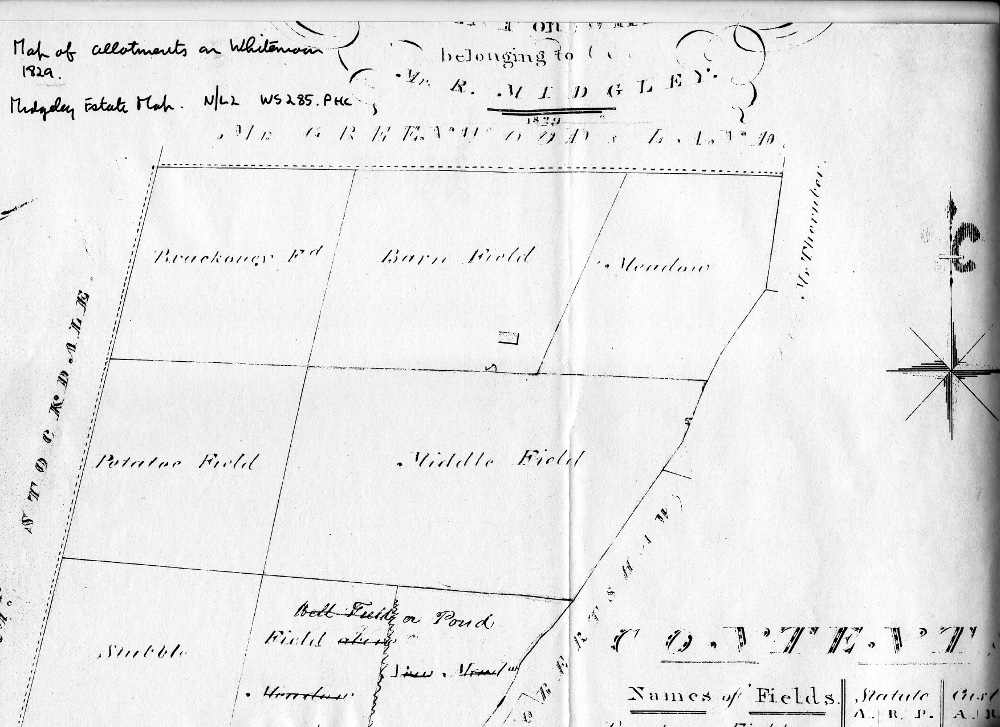 Map of allotments on Whitemoor
1829.
Midgeley Estate Map. N/L2 WS285.PHC
belonging to
Mr. R. MIDGLEY.
1829
Mr GREENWOOD's LAND
Mr Thornber
Brackoney Fd
Barn Field
Meadow
S
STOCKDALE
Potatoe Field
Middle Field
Bell Field or Pond
Field
Stubble
Meadow
CONTENT
Names of Fields.
Statute
A. R. P.